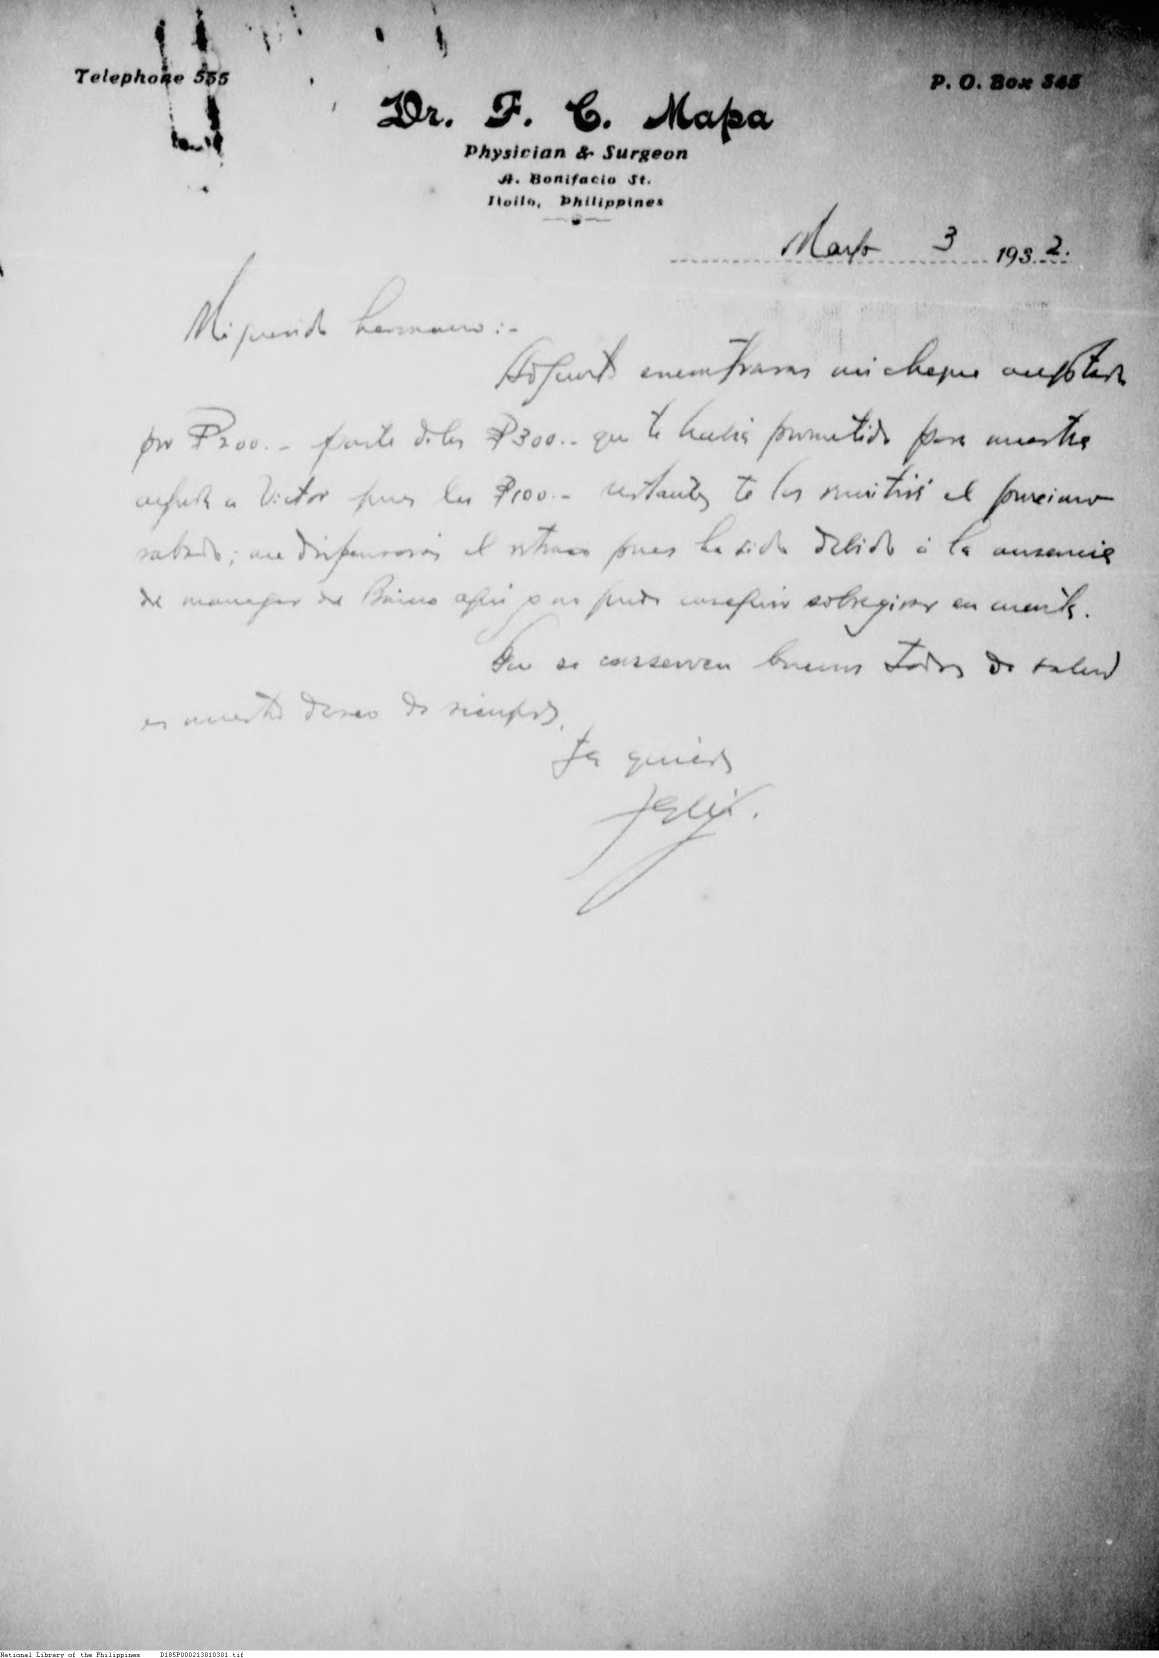 Telephone 555
P. O. Box 345
Dr. F. C. Mapa
Physician & Surgeon
A. Bonifacio St.
Iloilo, Philippines
Marzo 3 1932.
Mi querido hermano:-
Adjunto encontraras mi cheque aceptado
por ₱200.- parte de los ₱300.- que te habia prometido para nuestra
a Victor pues los ₱100.- restantes te los remitiré el proximo
sabado; me dispensarás el retraso pues ha sido debido á la ausencia
de manager de Banco aqui y no pude conseguir sobregirar en cuenta.
Que se conserven buenos todos de salud
es nuestro deseo de siempre.
Te quiere
Felix.
National Library of the Philippines D185P000213810301.tif